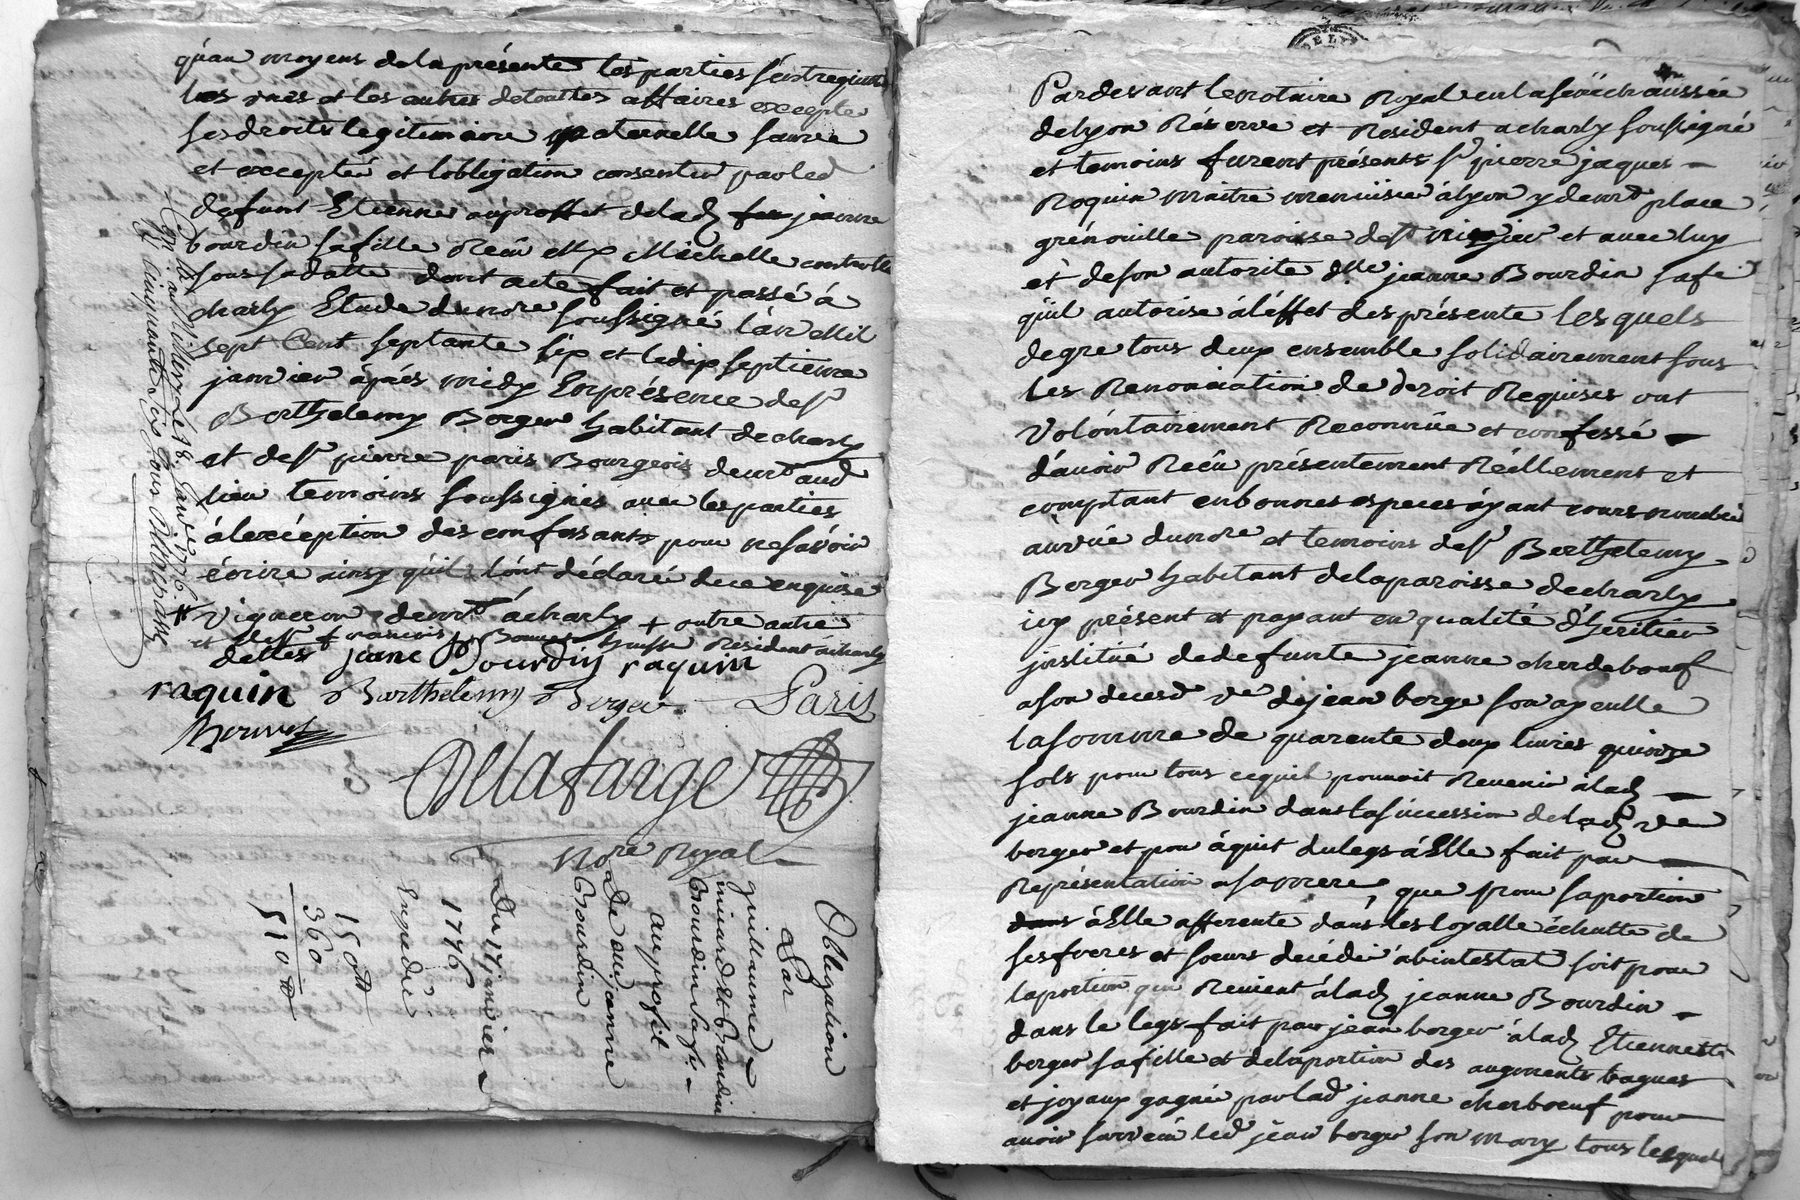 qu'au moyens de la présente les parties s'entrequittent
les unes et les autres de touttes affaires excepte
ses droits legitimaire paternelle sauve
et excepter et lobligation consentir par led
defunt Etienne au proffit de lad jeanne
bourdin sa fille Reçu Me Michalle controllé
sous sa datte dont acte fait et passé à
charly Etude du nore soussigné l'an Mil
sept Cent septante six et le dix septieme
janvier après midy En présence de sr
Berthelemy Berger habitant de charly
et de sr pierre paris Bourgeois demt aud
lieu temoins soussignés avec les parties
à l'exception des confessants pour ne savoir
écrire ainsy qu'ils l'ont déclaré de ce enquise
vigneron demt à charly + outre autre
et de sr francois Bonnet huissr Résident à charly
dettes jeane Bourdin raquin
raquin Barthelemy Berger Paris
Bonnet
Delafarge
Nore Royal
Le 18 janvr 1776
Obligation
Par
guillaume
miard et Claudine
Bourdin sa fe
au profit
De dlle jeanne
Bourdin
Du 17 janvier
1776
Expediée
150 tt
360
510 tt
Pardevant le notaire Royal en la sénéchaussée
de lyon Réservé et Résident a charly soussigné
et temoins furent présents sr pierre jaques
Roquin maitre menuisier à lyon y demt place
grénouille paroisse de st nizier et avec luy
et de son autorite dlle jeanne Bourdin sa fe
qu'il autorise à l'éffet des présente les quels
de gre tous deux ensemble solidairement sous
les Renonciation de droit Requises ont
Volontairement Reconnüe et confessé
d'avoir Reçu présentement Réellement et
comptant en bonnes especes ayant cours nombré
au vüe du nore et temoins de sr Berthelemy
Berger habitant de la paroisse de charly
icy présent et payant en qualité d'heritier
institué de defunte jeanne cherdebœuf
a son deced ve de jean berge son ayeulle
la somme de quarente deux livres quinze
sols pour tous ce qui pouvoit Revenir à lad
jeanne Bourdin dans la succession de lad ve
berger et pour aquit du legs à Elle fait par
Représentation a sa mere, que pour sa portion
à Elle afferente dans les loyalle échutte de
ses freres et sœurs décédé abintestat soit pour
la portion qui Revient à lad jeanne Bourdin
dans le legs fait par jean berger à lad Etiennette
berger sa fille et de la portion des augments bagues
et joyaux gagnée par lad jeanne cherbœuf pour
avoir survécu led jean berger son mary tous lesquels